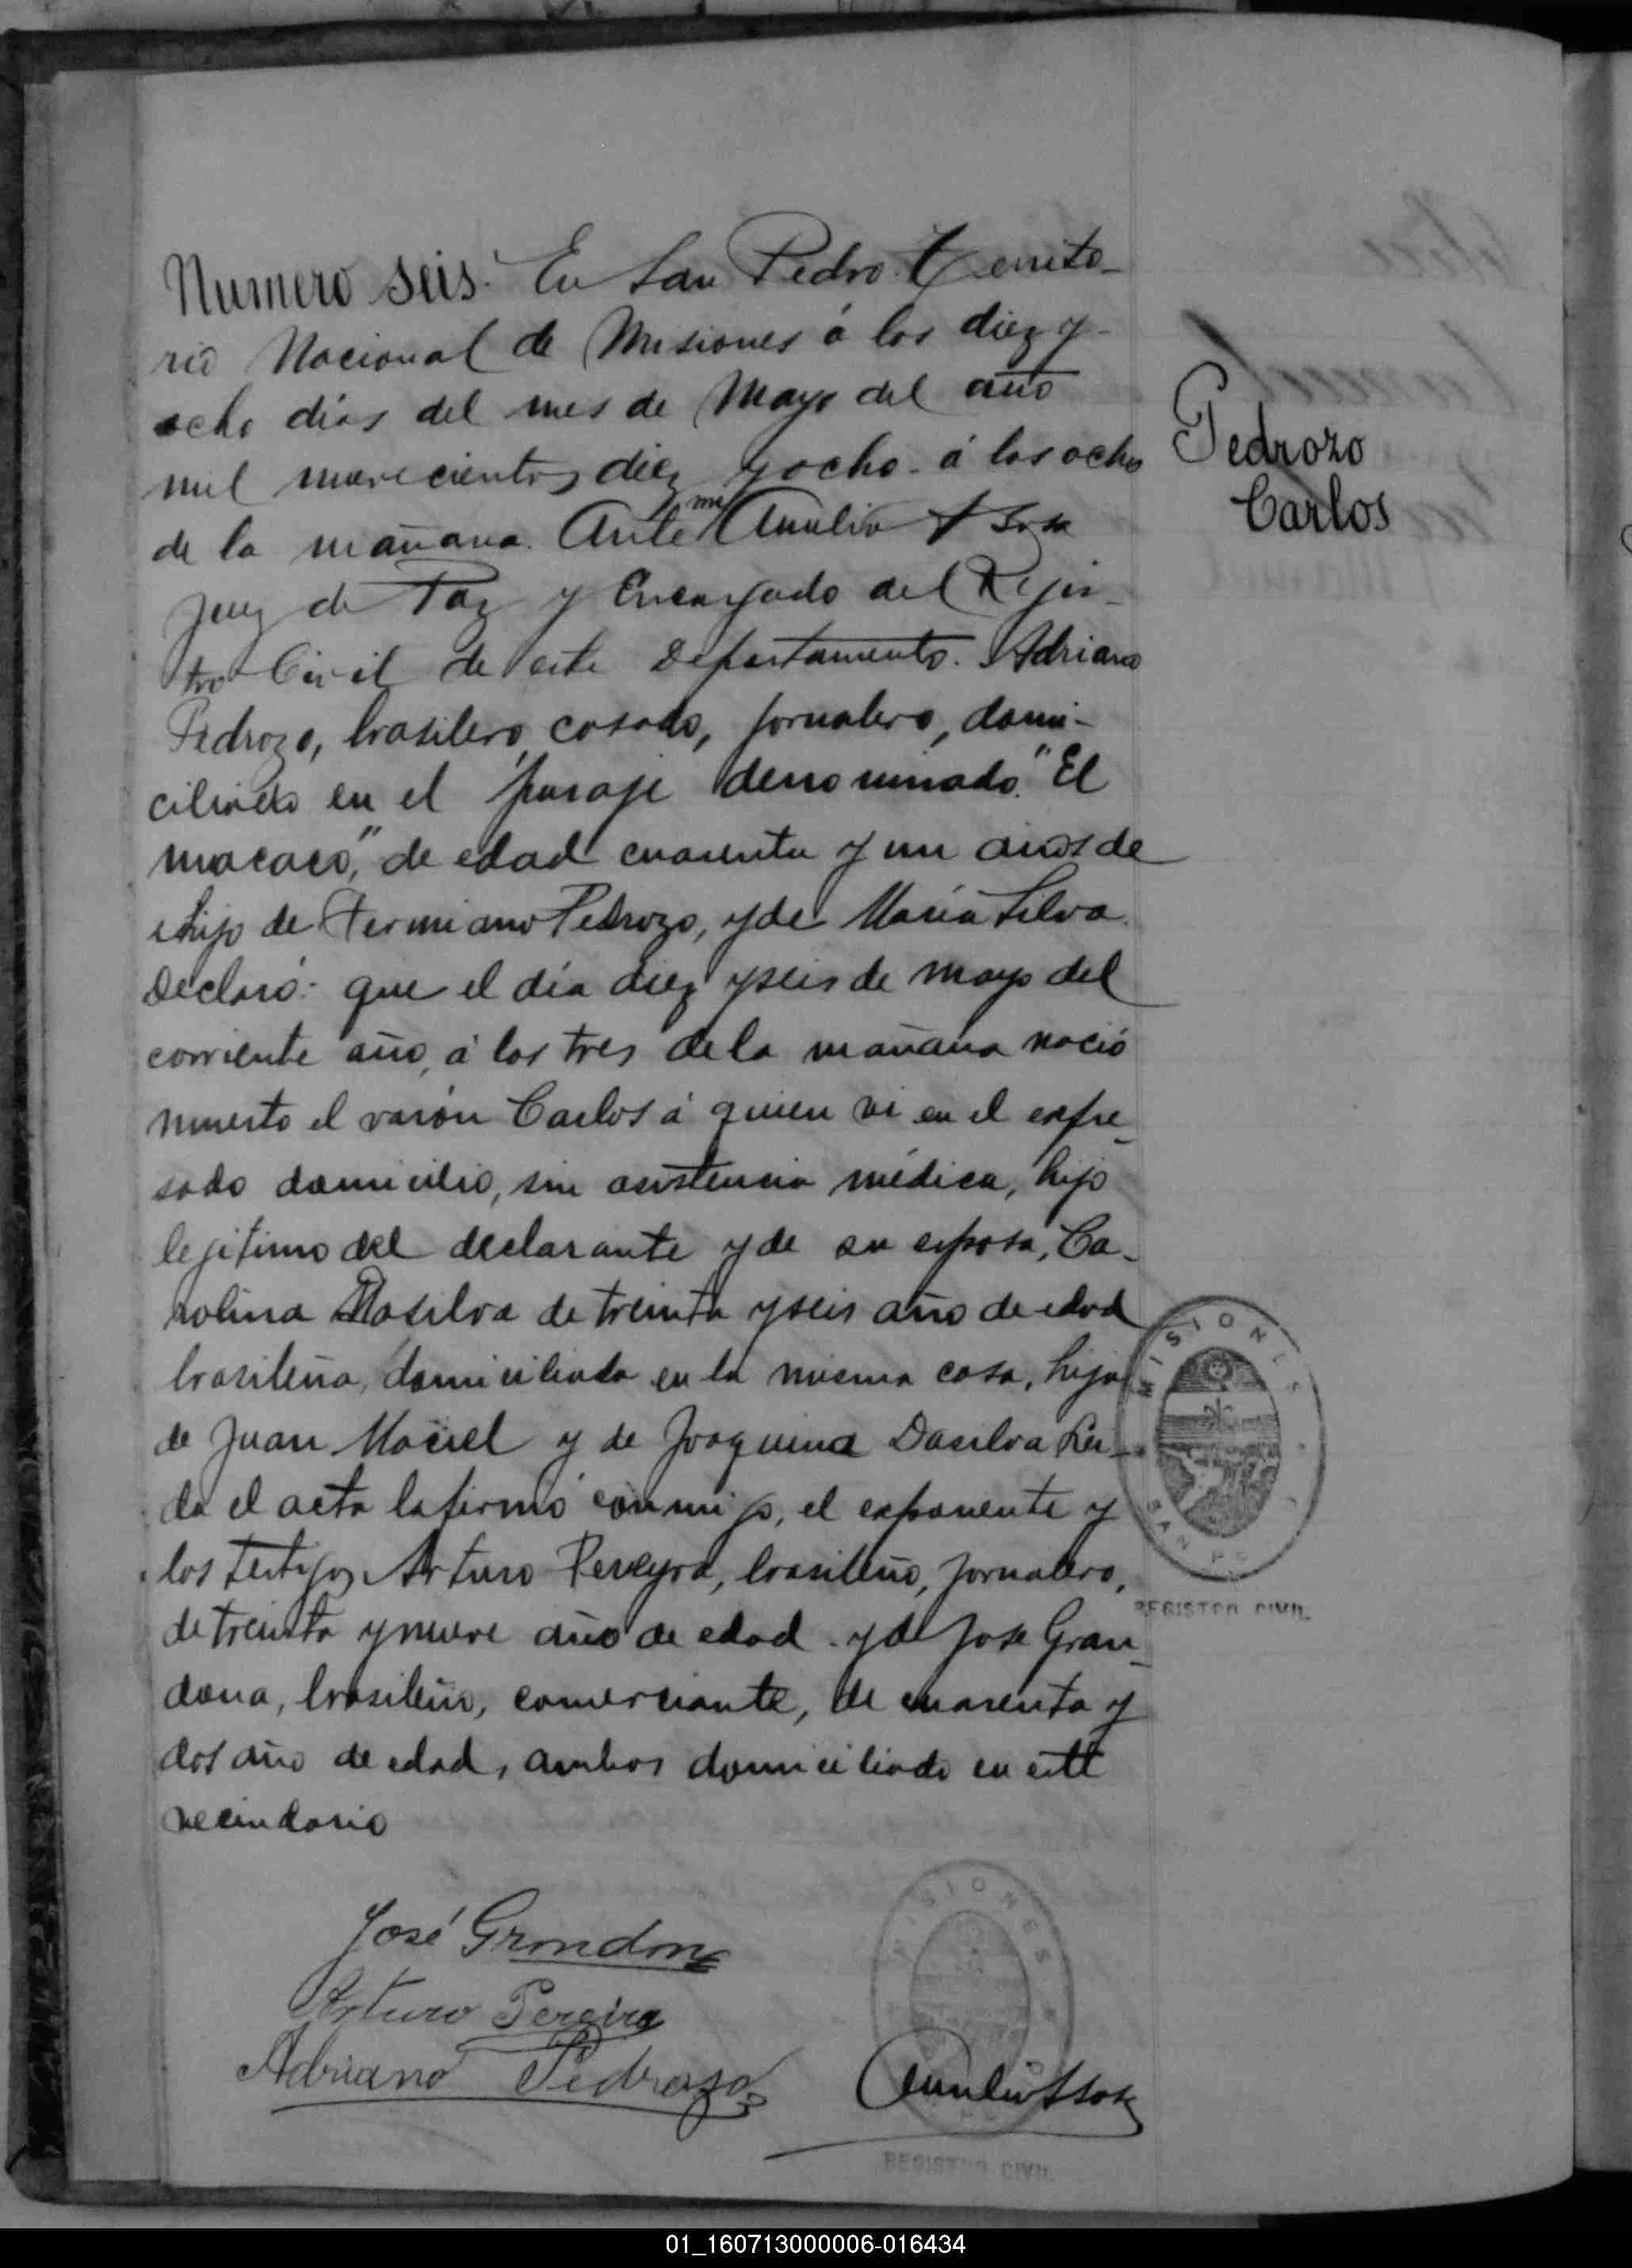 Numero seis. En San Pedro Territo-
rio Nacional de Misiones á los diez y-
ocho dias del mes de Mayo del año
mil novecientos diez y ocho á las ocho
de la mañana. Ante mi
Juez de Paz y Encargado del Rejis-
tro Civil de este Departamento. Adriano
Pedrozo, brasilero, casado, jornalero, domi-
ciliado en el paraje denominado "El
macaco," de edad cuarenta y un años de
hijo de Fermiano Pedrozo, y de María Silva.
Declaró: que el día diez y seis de mayo del
corriente año, á las tres de la mañana nació
muerto el varón Carlos á quien vi en el expre-
sado domicilio, sin asistencia médica, hijo
lejitimo del declarante y de su esposa, Ca-
rolina Dasilva de treinta y seis año de edad
brasileña, domiciliada en la misma casa, hija
de Juan Maciel y de Joaquina Dasilva Lei-
da el acta la firmó conmigo, el exponente y
los testigos Arturo Pereyra, brasileño, jornalero,
de treinta y nueve año de edad y de José Gran-
dona, brasileño, comerciante, de cuarenta y
dos año de edad, ambos domiciliado en este
vecindario
Pedrozo
Carlos
MISIONES
SAN PE
REGISTRO CIVIL
José Grondona
Arturo Pereira
Adriano Pedrozo
MISIONES
REGISTRO CIVIL
01_160713000006-016434